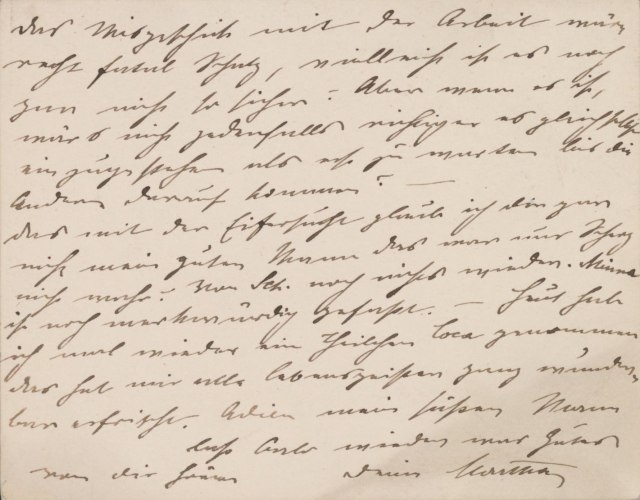 das Misgeschick mit der Arbeit wäre
recht fatal Schatz, vielleicht ist es noch
gar nicht so sicher? Aber wenn es ist,
wär's nicht jedenfalls richtiger es gleich selbst
einzugestehen als erst zu warten bis die
Andern darauf kommen? —
das mit der Eifersucht glaub ich Dir gar
nicht mein guter Mann das war nur Scherz
nicht wahr? Von Sch. noch nichts wieder. Minna
ist noch merkwürdig gefaßt. — Heut hab
ich mal wieder ein Theilchen Coca genommen
das hat mir alle Lebensgeister ganz wunder-
bar erfrischt. Adieu mein süßer Mann
laß bald wieder was Gutes
von Dir hören Deine Martha